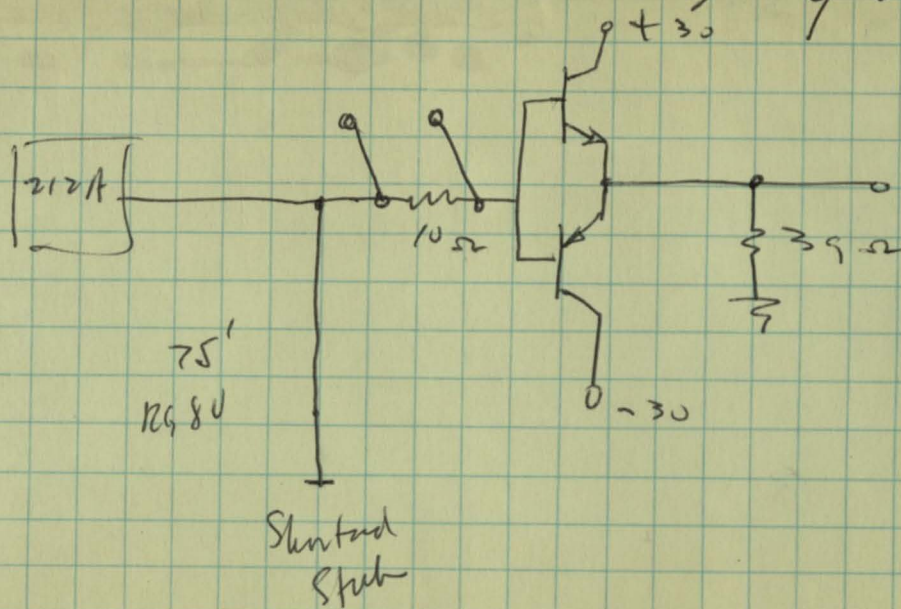 + 30
212A
10 Ω
39 Ω
75'
RG 8U
- 30
Shorted
Stub